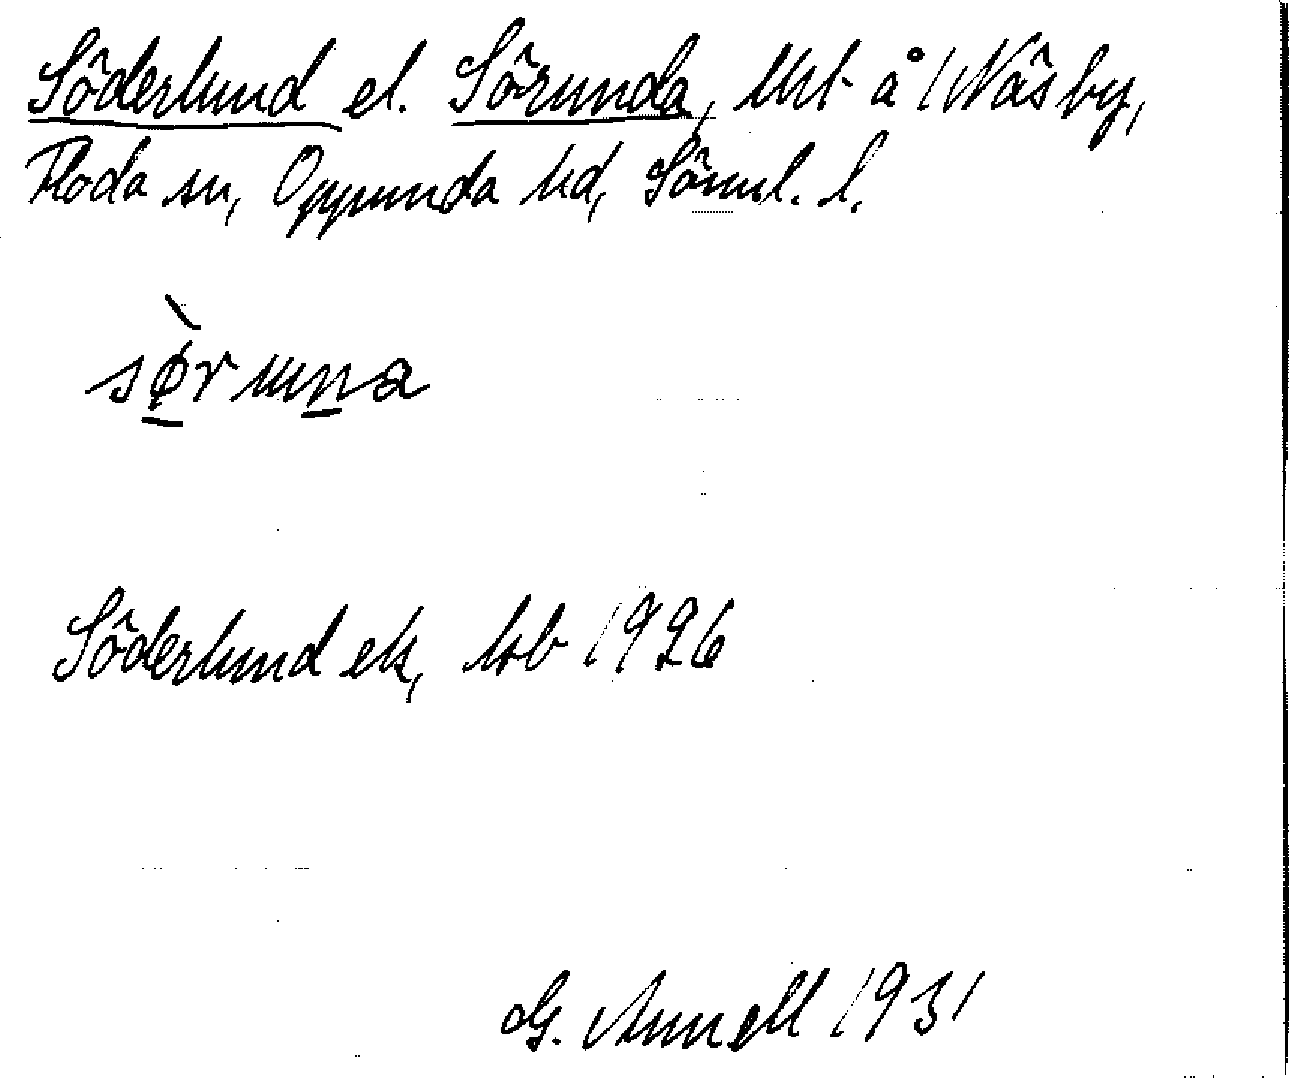 Söderlund el. Sörunda, Utt å 1 Näsby,
Floda sn, Oppunda hd, Söml. l.
sø̀runa
Söderlund ek, ksb 1926
G. Annell 1931